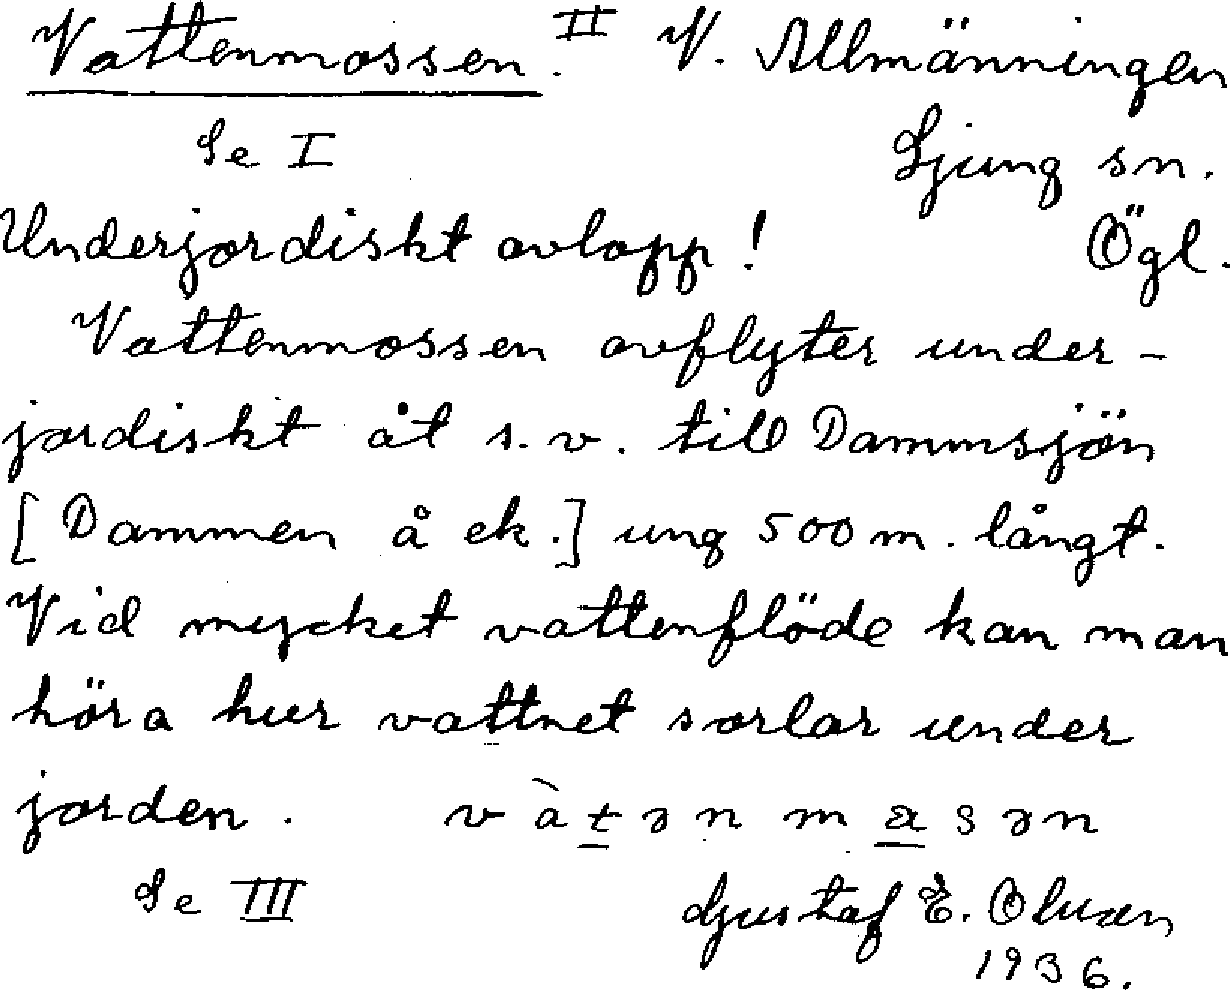 Vattenmossen. II V. Allmänningen
Se I Ljung sn.
Underjordiskt avlopp! Ögl.
Vattenmossen avflyter under-
jordiskt åt s.v. till Dammsjön
[Dammen å ek.] ung 500 m. långt.
Vid mycket vattenflöde kan man
höra hur vattnet sorlar under
jorden. vàtənmasən
Se III Gustaf E. Olsson
1936.